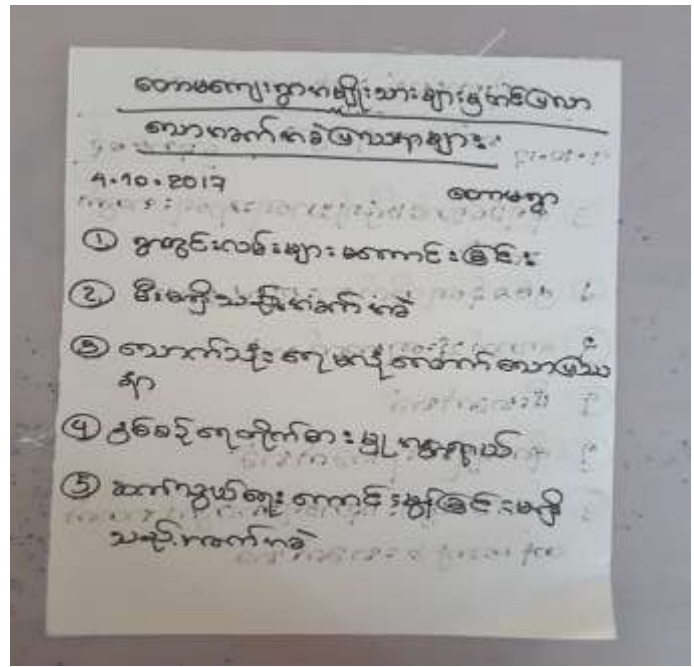 တောမကျေးရွာအမျိုးသားများနှင့်ပြလာ
သောအခက်အခဲပြဿနာများ
9.10.2017 တောမရွာ
① ရွာတွင်းလမ်းများမကောင်းခြင်း
② မီးမရှိသည့်အခက်အခဲ
③ သောက်သုံးရေမလုံလောက်သောပြဿ
နာ
④ နှစ်စဉ်ရေတိုက်စားမှုအန္တရာယ်
⑤ ဆက်သွယ်ရေးကောင်းမွန်ခြင်းမရှိ
သည့်အခက်အခဲ